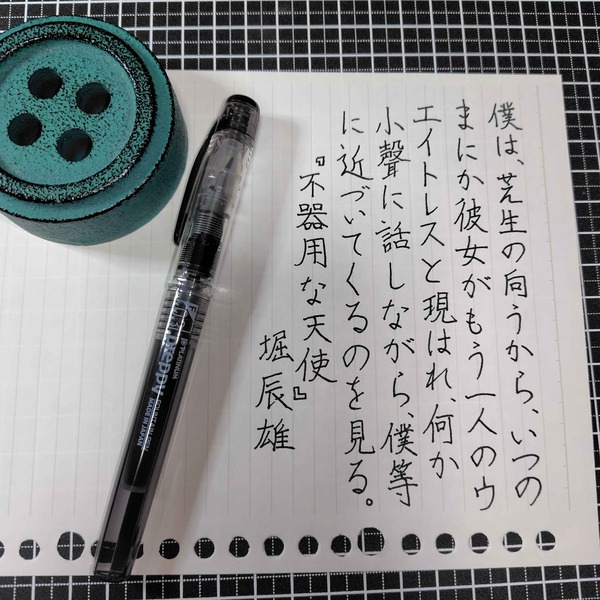 僕は、芝生の向うから、いつの
まにか彼女がもう一人のウ
エイトレスと現はれ、何か
小聲に話しながら、僕等
に近づいてくるのを見る。
『不器用な天使』
堀辰雄
PLATINUM
preppy
FOUNTAIN PEN
MADE IN JAPAN